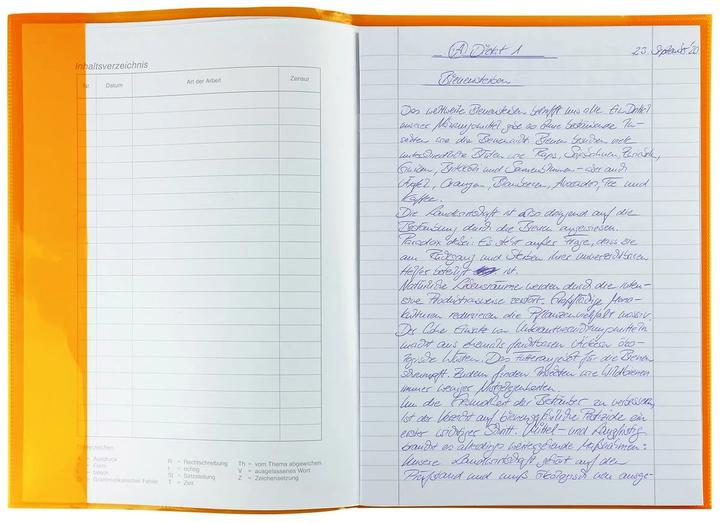 Inhaltsverzeichnis
Nr. Datum Art der Arbeit Zensur
A = Ausdruck R = Rechtschreibung Th = vom Thema abgewichen
= Form r = richtig V = ausgelassenes Wort
= falsch St = Satzstellung Z = Zeichensetzung
= Grammatikalischer Fehler T = Zeit
A Diktat 1 23. September '20
Bienensterben
Das weltweite Bienensterben betrifft uns alle. Ein Drittel
unserer Nahrungsmittel gäbe es ohne bestäubende In-
sekten wie die Biene nicht. Bienen brauchen viele
unterschiedliche Blüten wie Raps, Sojabohnen,
Gurken, und Sonnenblumen - aber auch
Äpfel, Orangen, Blaubeeren, Avocados, Tee und
Kaffee.
Die Landwirtschaft ist also dringend auf die
Bestäubung durch die Bienen angewiesen.
Paradox dabei: Es steht außer Frage, dass sie
am Rückgang und Sterben ihrer unverzichtbaren
Helfer beteiligt ist.
Natürliche Lebensräume werden durch die inten-
sive Produktionsweise zerstört. Großflächige Mono-
kulturen reduzieren die Pflanzenvielfalt massiv.
Der hohe Einsatz von Unkrautvernichtungsmitteln
macht aus ehemals fruchtbaren Äckern öko-
logische Wüsten. Das Futterangebot für die Bienen
schrumpft. Zudem finden Insekten wie Wildbienen
immer weniger Nistgelegenheiten.
Um die Gesundheit der Bestäuber zu verbessern,
ist der Verzicht auf bienengefährliche Pestizide ein
erster wichtiger Schritt. Mittel- und langfristig
braucht es allerdings weitergehende Maßnahmen:
Unsere Landwirtschaft gehört auf den
Prüfstand und muss ökologisch